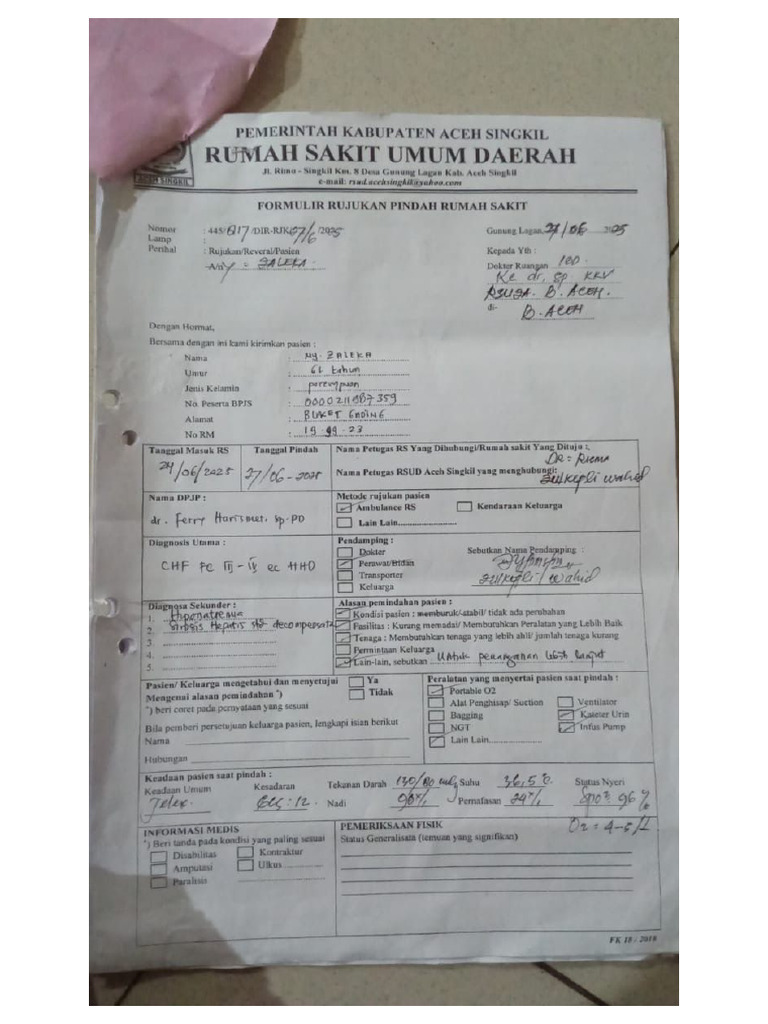 PEMERINTAH KABUPATEN ACEH SINGKIL
RUMAH SAKIT UMUM DAERAH
ACEH SINGKIL
Jl. Rimo - Singkil Km. 8 Desa Gunung Lagan Kab. Aceh Singkil
e-mail: rsud.acehsingkil@yahoo.com
FORMULIR RUJUKAN PINDAH RUMAH SAKIT
Nomor : 445/ /DIR-RJK/07/6/2025 Gunung Lagan, 27/06 2025
Lamp :
Perihal : Rujukan/Reveral/Pasien Kepada Yth :
A/n = ZALEKA Dokter Ruangan IGD
Ke dr. Sp KKV
RSUZA. B. ACEH.
di- B. ACEH
Dengan Hormat,
Bersama dengan ini kami kirimkan pasien :
Nama : Ny. ZALEKA
Umur : tahun
Jenis Kelamin : perempuan
No. Peserta BPJS : 0000211987359
Alamat : BUKET
No RM : 19.99.23
Tanggal Masuk RS Tanggal Pindah Nama Petugas RS Yang Dihubungi/Rumah sakit Yang Dituju :
24/06/2025 27/06-2025 DR = Risma
Nama Petugas RSUD Aceh Singkil yang menghubungi: Zulkifli Wahid
Nama DPJP : Metode rujukan pasien
dr. Ferry Sp.PD Ambulance RS Kendaraan Keluarga
Lain Lain
Diagnosis Utama : Pendamping : Sebutkan Nama Pendamping :
CHF FC III-IV ec HHD Dokter
Perawat/Bidan
Transporter Zulkifli/Wahid
Keluarga
Diagnosa Sekunder : Alasan pemindahan pasien :
1. Hiponatremia Kondisi pasien : memburuk/stabil/ tidak ada perubahan
2. Sirosis Hepatis decompensata Fasilitas : Kurang memadai/ Membutuhkan Peralatan yang Lebih Baik
3. Tenaga : Membutuhkan tenaga yang lebih ahli/ jumlah tenaga kurang
4. Permintaan Keluarga
5. Lain-lain, sebutkan Untuk penanganan lebih lanjut
Pasien/ Keluarga mengetahui dan menyetujui Ya Peralatan yang menyertai pasien saat pindah :
Mengenai alasan pemindahan *) Tidak Portable O2
*) beri coret pada pernyataan yang sesuai Alat Penghisap/ Suction Ventilator
Bila pemberi persetujuan keluarga pasien, lengkapi isian berikut Bagging Kateter Urin
Nama NGT Infus Pump
Hubungan Lain Lain
Keadaan pasien saat pindah :
Keadaan Umum Kesadaran Tekanan Darah 130/80 Suhu 36,5°C Status Nyeri
GCS : 12 Nadi Pernafasan 24x/i SpO2 96 %
INFORMASI MEDIS PEMERIKSAAN FISIK O2 = 4-5/L
*) Beri tanda pada kondisi yang paling sesuai Status Generalisata (temuan yang signifikan)
Disabilitas Kontraktur
Amputasi Ulkus
Paralisis
FK 18 / 2018